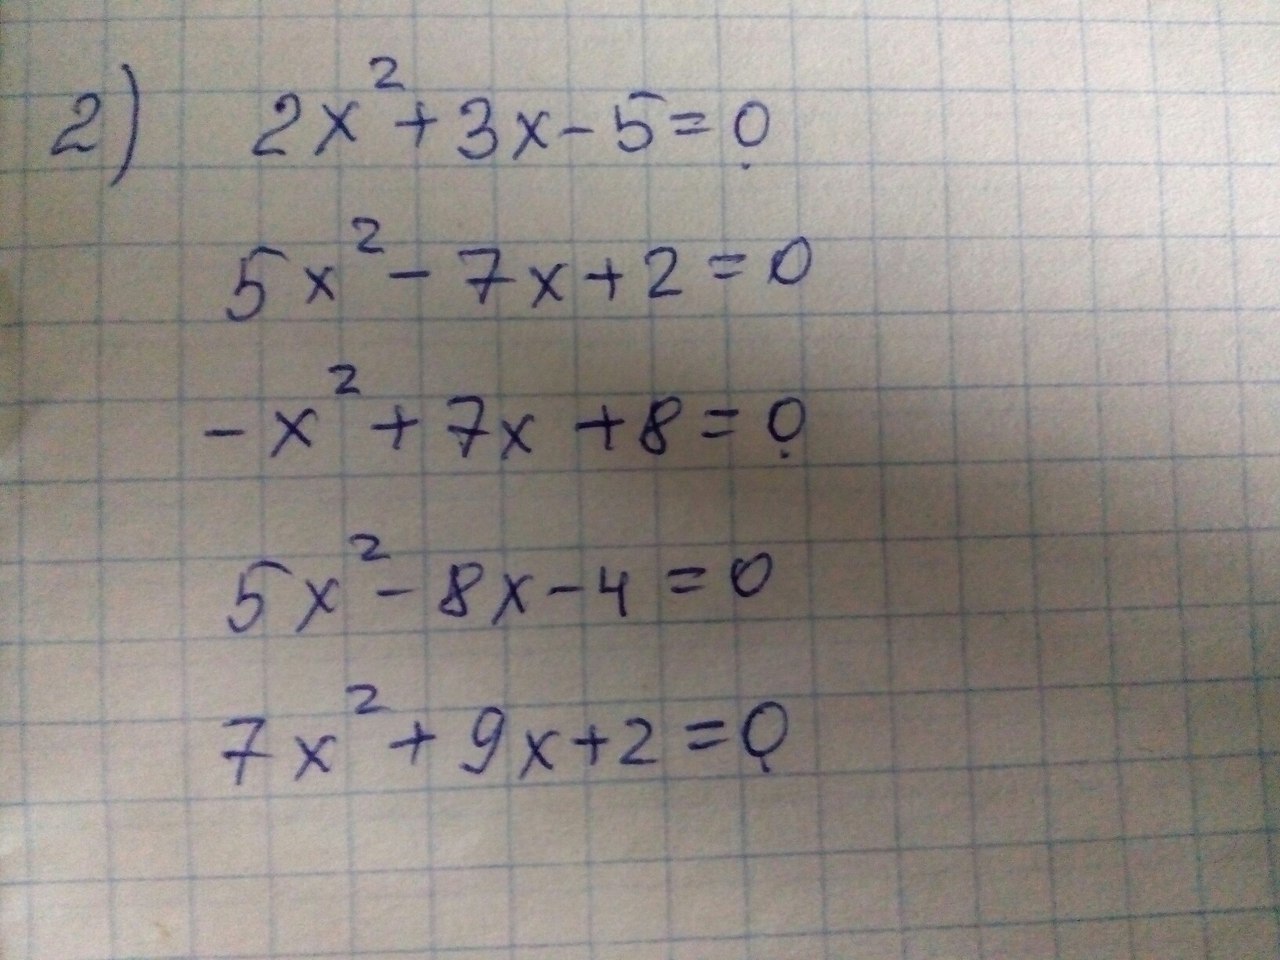 2) 2x² + 3x - 5 = 0
5x² - 7x + 2 = 0
-x² + 7x + 8 = 0
5x² - 8x - 4 = 0
7x² + 9x + 2 = 0